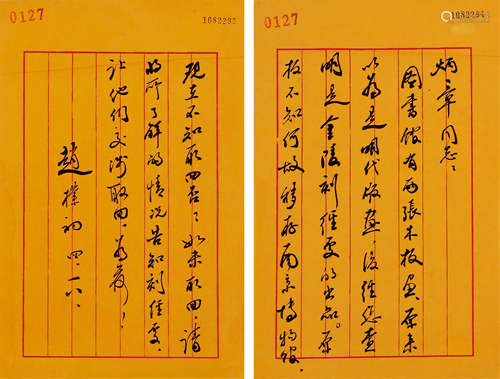 0127
1082294
炳章同志：
图書馆有两張木板画，原来
以為是明代版画，後经您查
明是金陵刻经处的出品。原
板不知何故移在南京博物馆。
0127
1082293
现在不知取回否？如未取回，请
将所了解的情况告知刻经处，
让他们交涉取回。为荷！
趙樸初 四．一八．